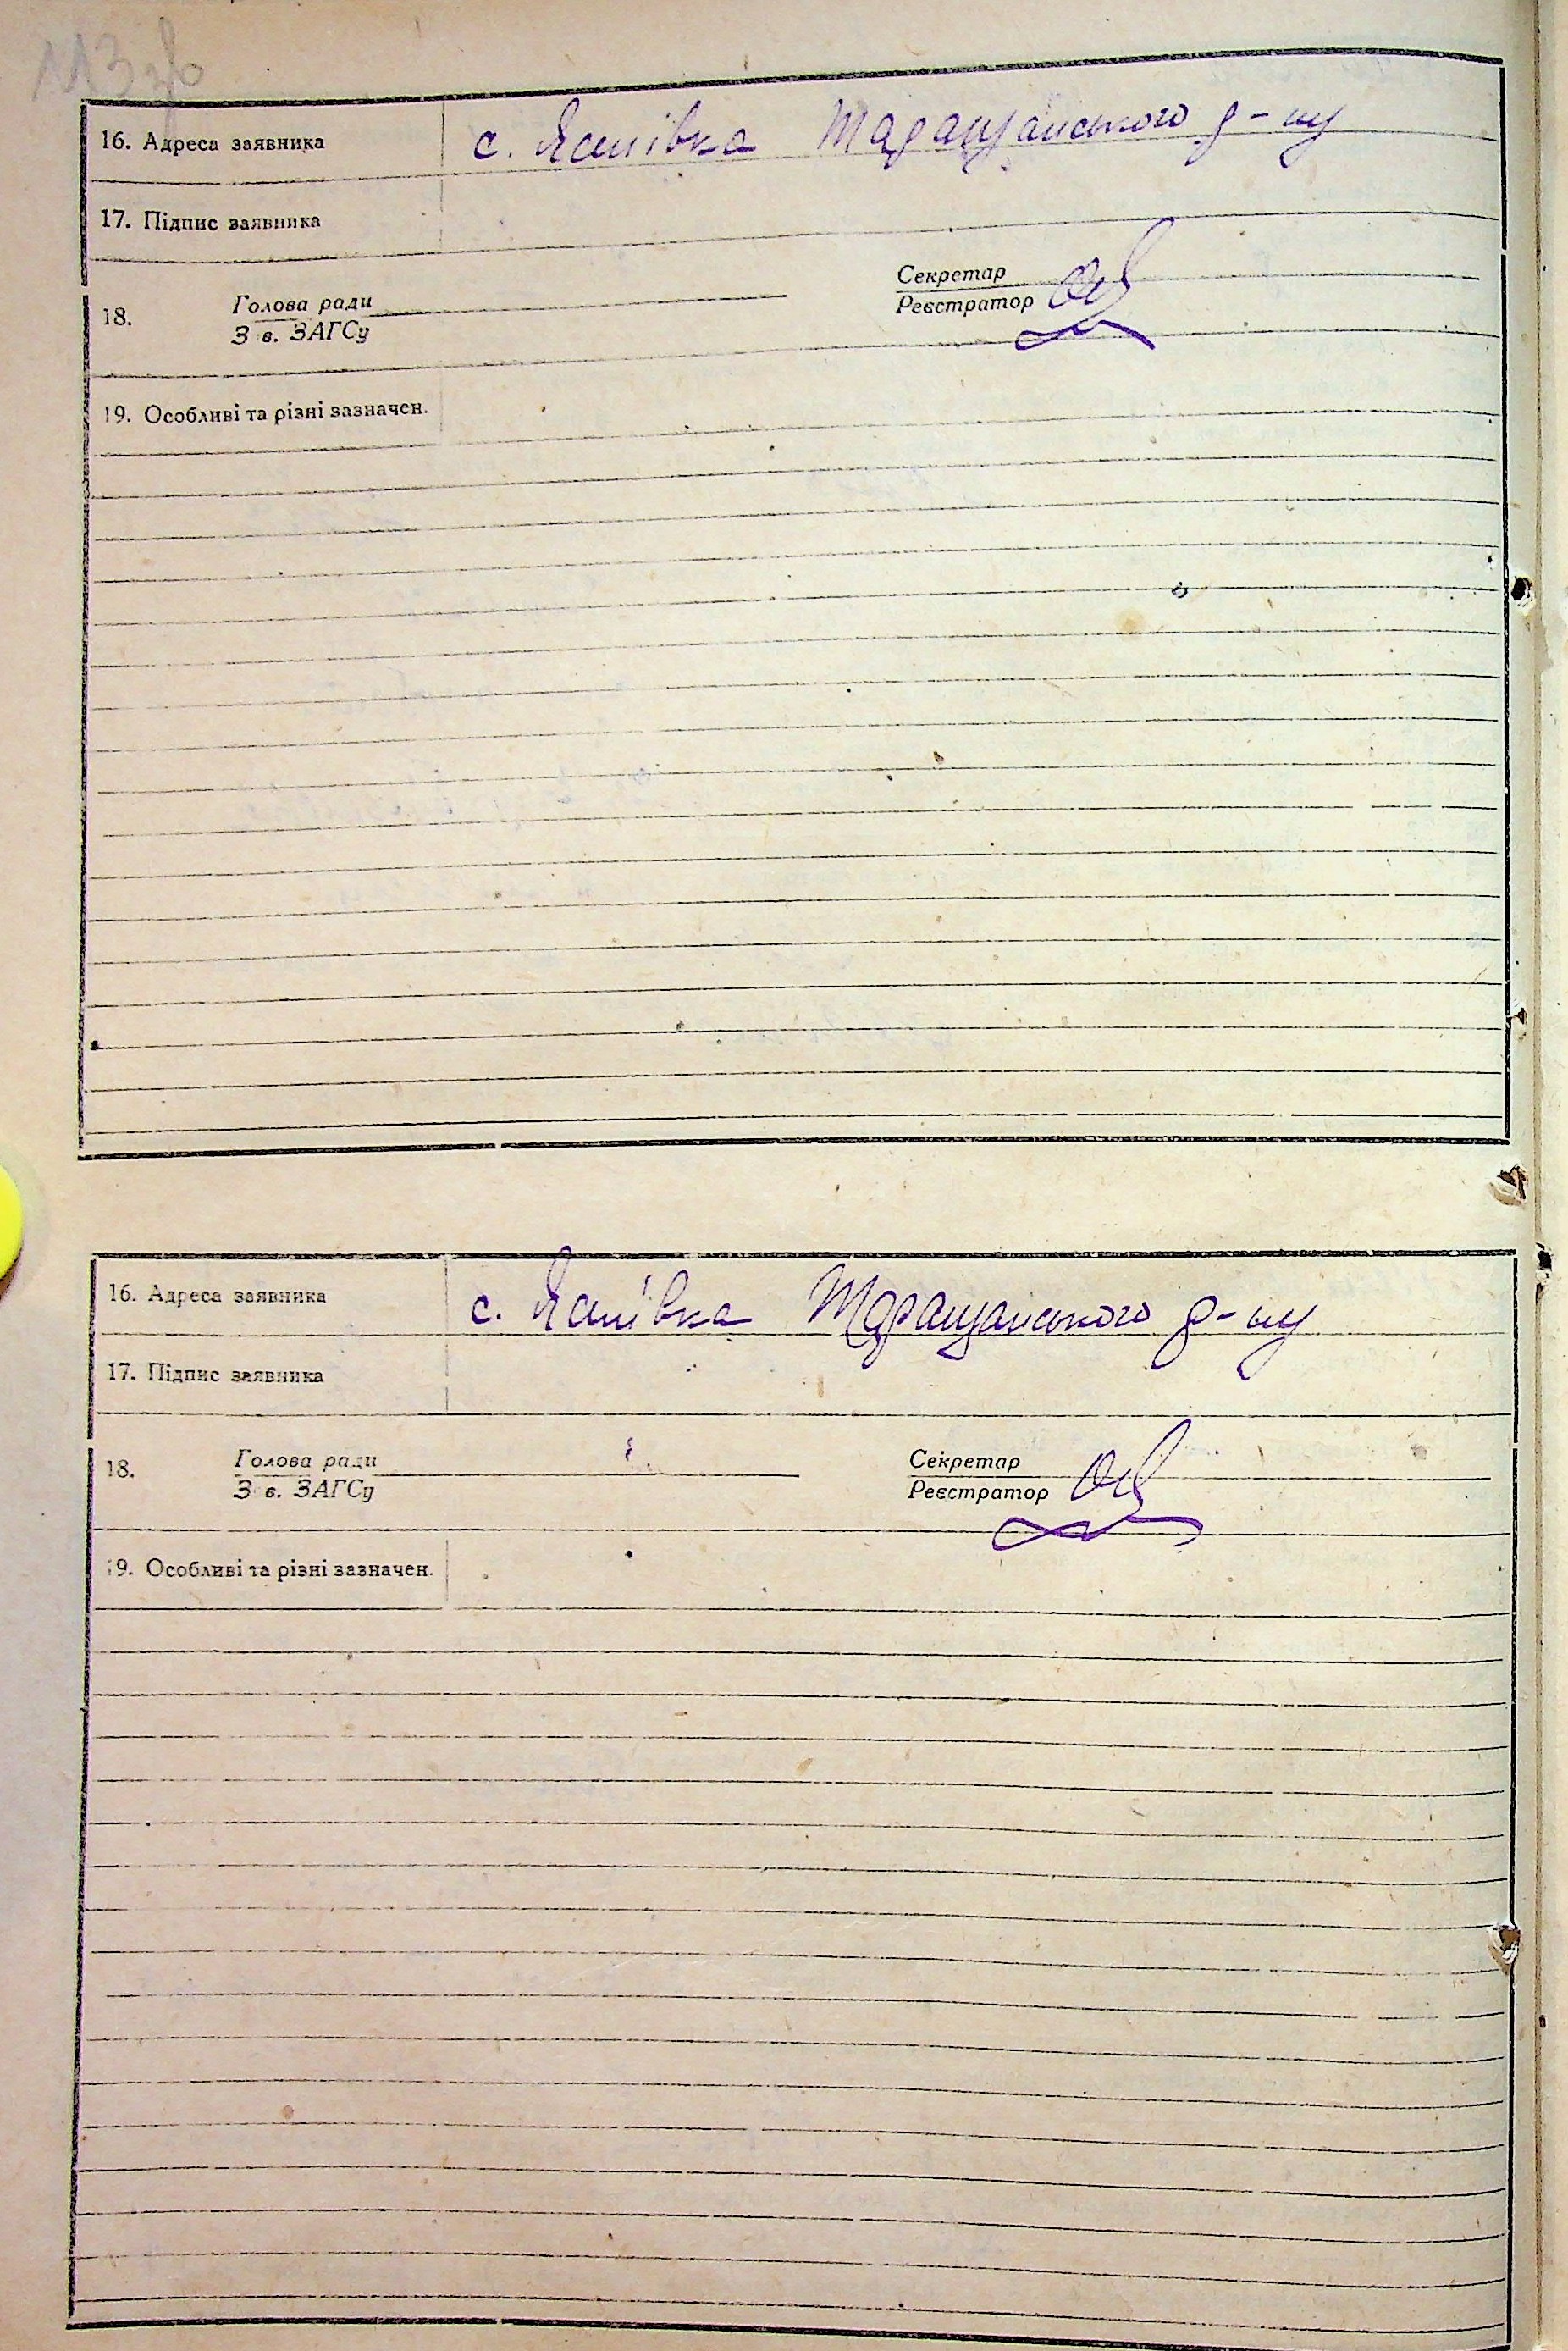 113 зв
16. Адреса заявника с. Яшівка Таращанського р-ну
17. Підпис заявника
Секретар
18. Голова ради Реєстратор
Зав. ЗАГСу
19. Особливі та різні зазначен.
16. Адреса заявника с. Яшівка Таращанського р-ну
17. Підпис заявника
18. Голова ради Секретар
Зав. ЗАГСу Реєстратор
19. Особливі та різні зазначен.